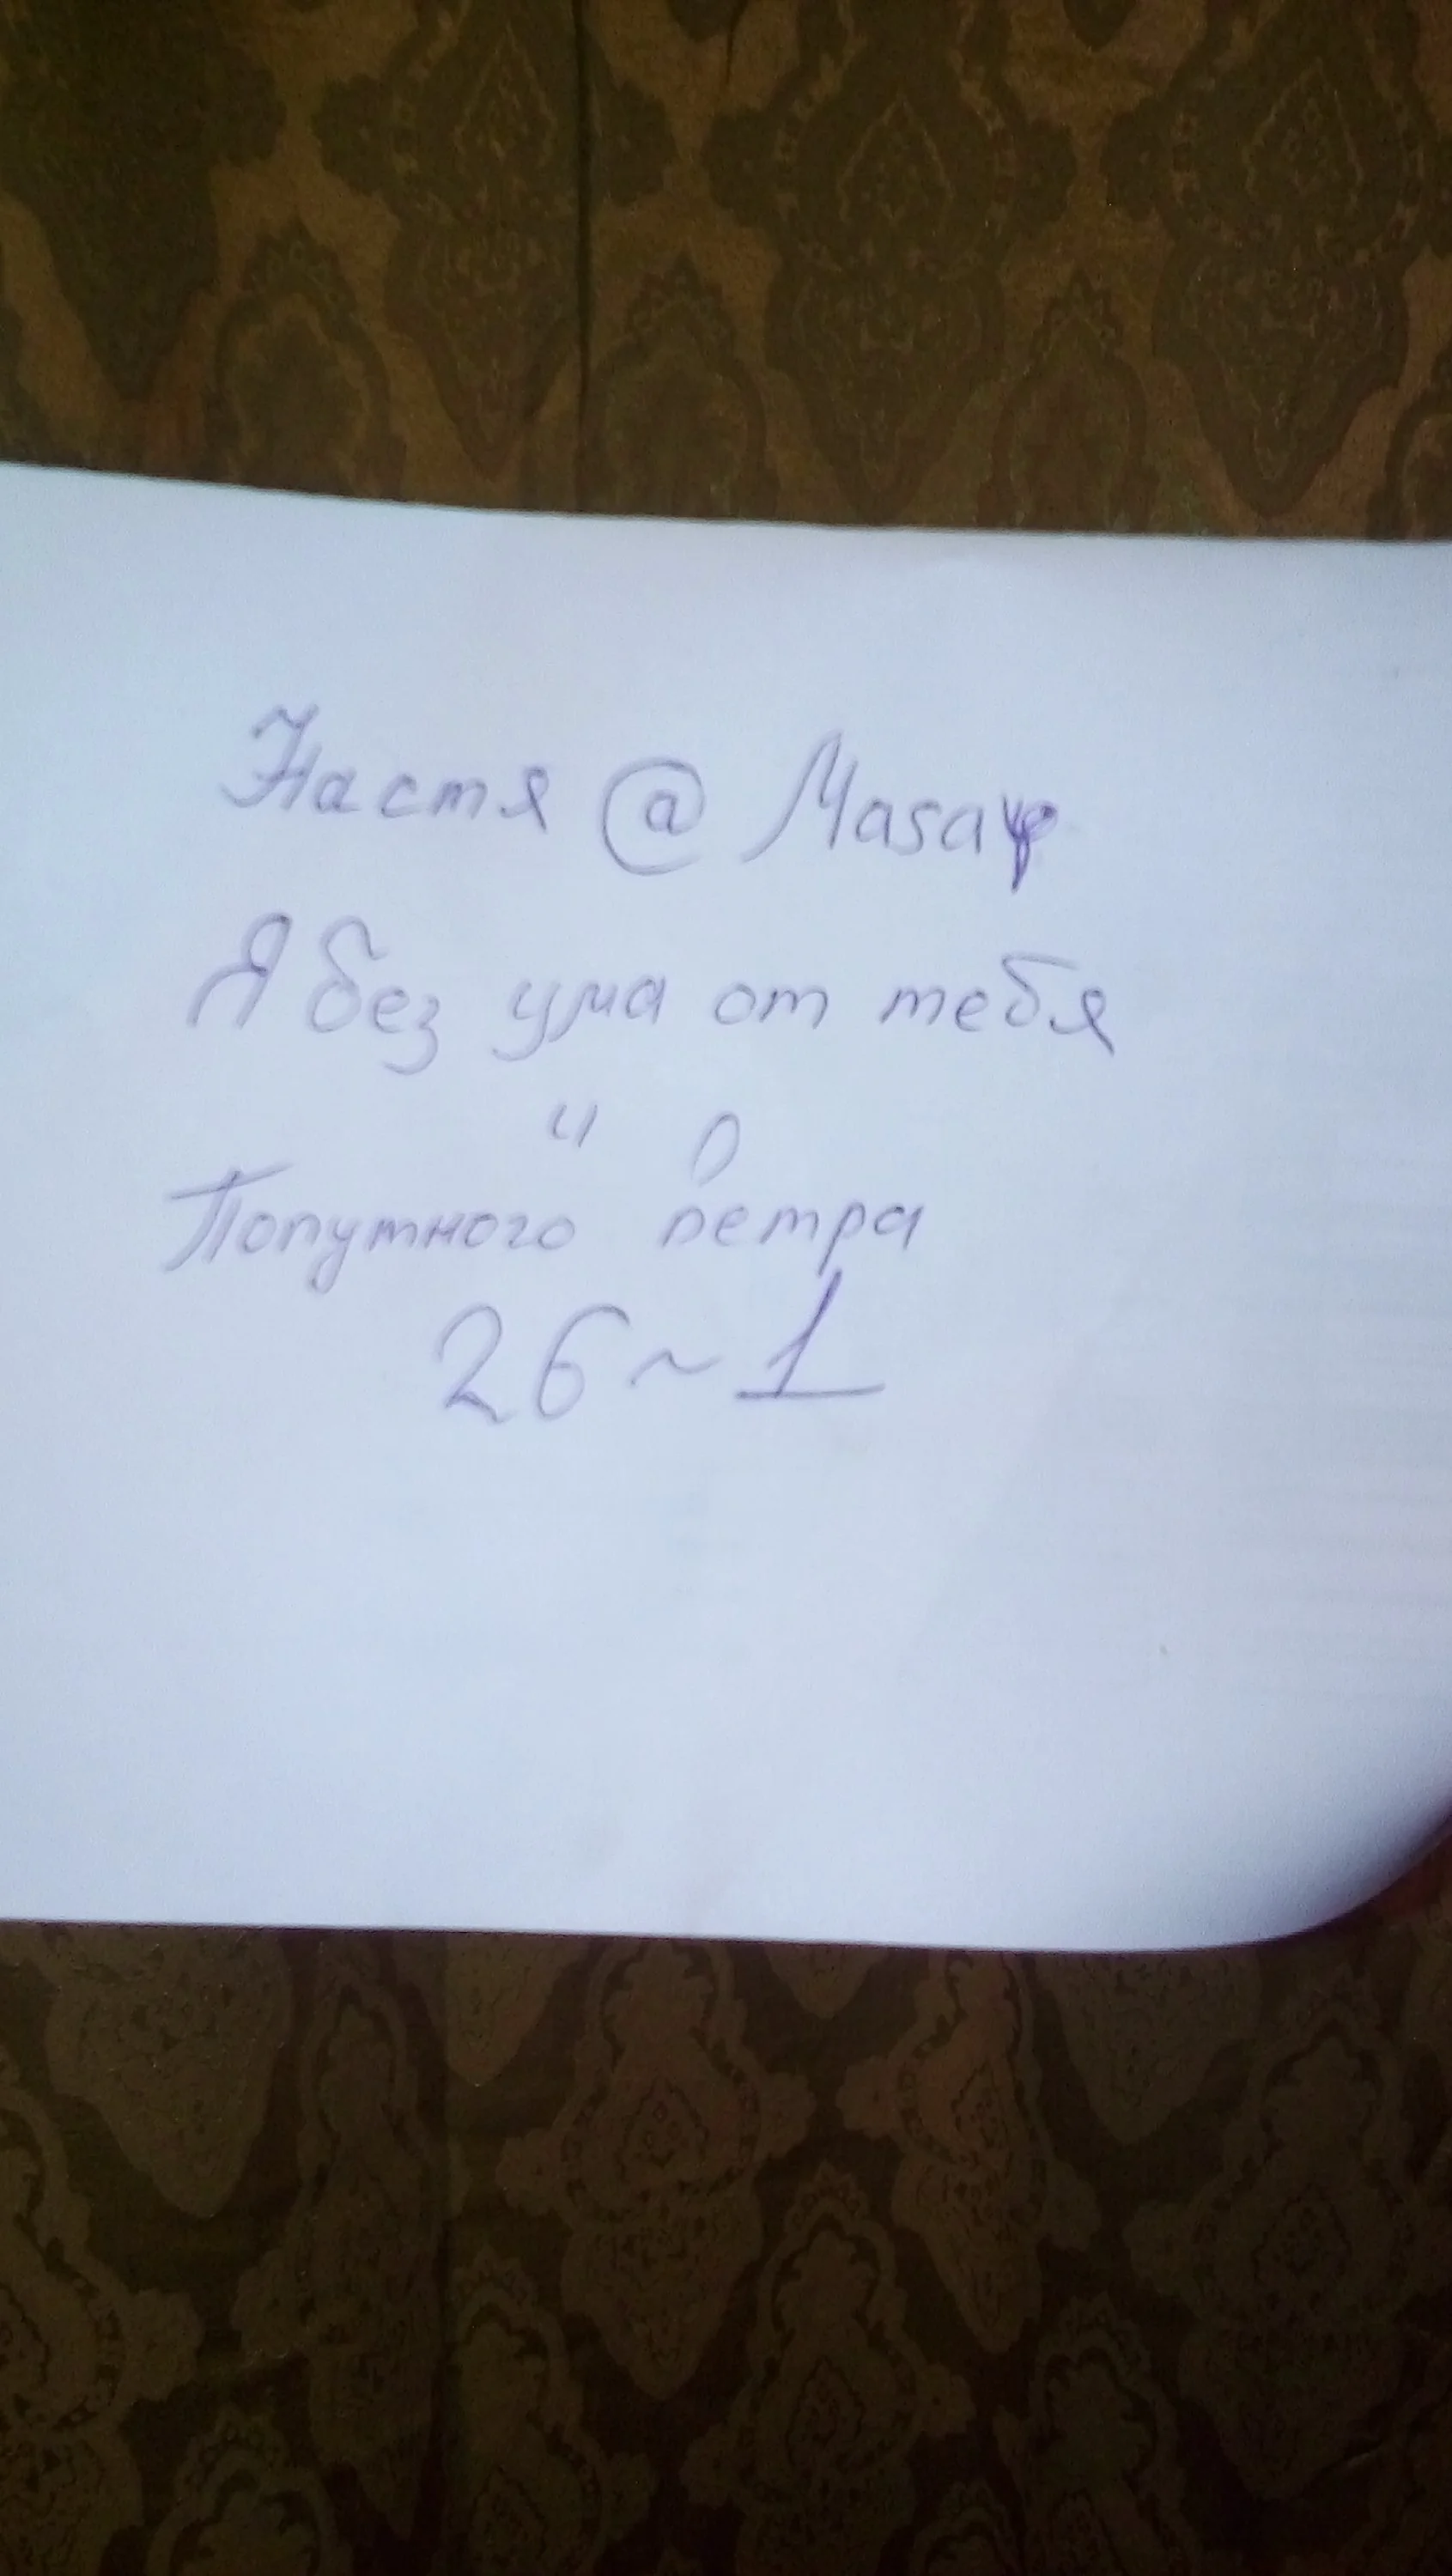 Настя @ Masaψ
Я без ума от тебя
и
Попутного ветра
26 ~ 1